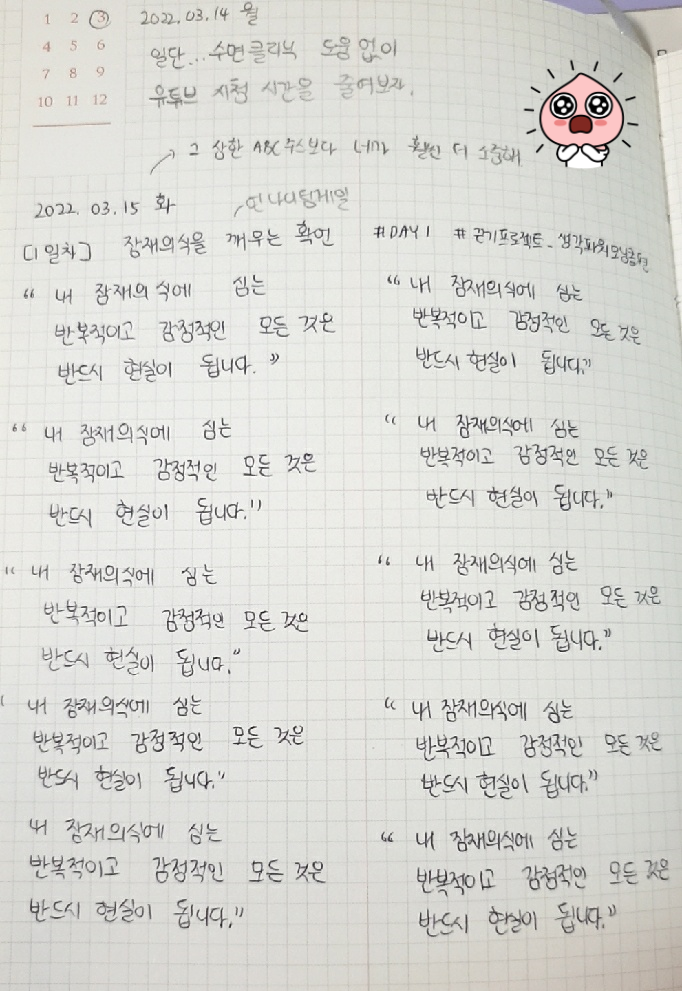 1 2 3
4 5 6
7 8 9
10 11 12
2022.03.14 월
일단... 수면클리닉 도움없이
유튜브 시청 시간을 줄여보자.
그 상한 ABC주스보다 너가 훨씬 더 소중해
2022. 03.15 화
[1일차] 잠재의식을 깨우는 확언
"내 잠재의식에 심는
반복적이고 감정적인 모든 것은
반드시 현실이 됩니다."
"내 잠재의식에 심는
반복적이고 감정적인 모든 것은
반드시 현실이 됩니다."
"내 잠재의식에 심는
반복적이고 감정적인 모든 것은
반드시 현실이 됩니다."
내 잠재의식에 심는
반복적이고 감정적인 모든 것은
반드시 현실이 됩니다."
내 잠재의식에 심는
반복적이고 감정적인 모든 것은
반드시 현실이 됩니다."
#DAY1 #끈기프로젝트_생각파워
"내 잠재의식에 심는
반복적이고 감정적인 모든 것은
반드시 현실이 됩니다."
"내 잠재의식에 심는
반복적이고 감정적인 모든 것은
반드시 현실이 됩니다."
"내 잠재의식에 심는
반복적이고 감정적인 모든 것은
반드시 현실이 됩니다."
"내 잠재의식에 심는
반복적이고 감정적인 모든 것은
반드시 현실이 됩니다."
"내 잠재의식에 심는
반복적이고 감정적인 모든 것은
반드시 현실이 됩니다."